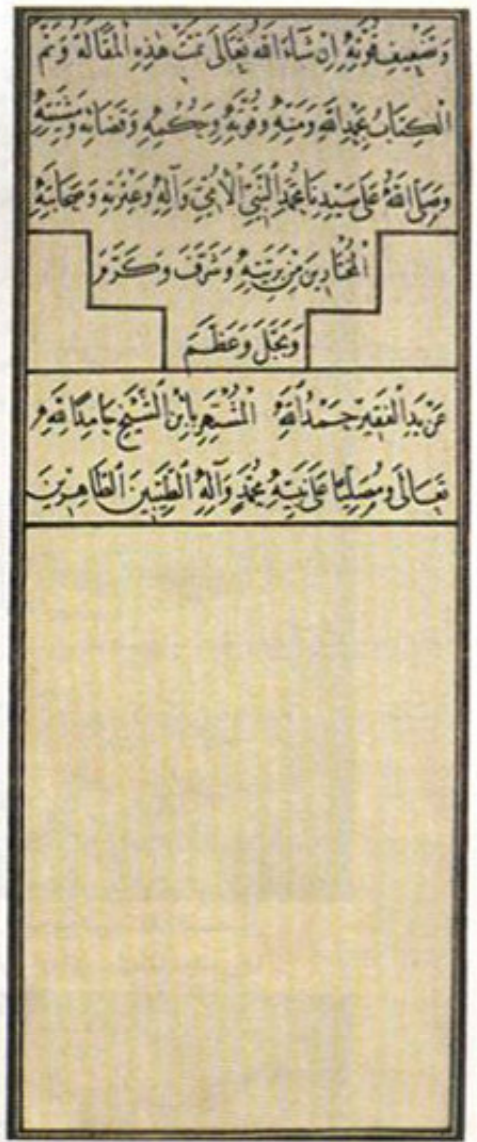 وَضَعِيفِ قُوَّتِهِ اِنْ شَآءَ اللهُ تَعَالَى تَمَّتْ هٰذِهِ الْمَقَالَةُ وَتَمَّ
الْكِتَابُ بِحَمْدِ اللهِ وَمَنِّهِ وَقُوَّتِهِ وَحُكْمِهِ وَقَضَائِهِ وَمَشِيَّتِهِ
وَصَلَّى اللهُ عَلَى سَيِّدِنَا مُحَمَّدٍ النَّبِيِّ الْاُمِّيِّ وَآلِهِ وَعِتْرَتِهِ وَصَحَابَتِهِ
الْمُخْتَارِينَ مِنْ بَرِيَّتِهِ وَشَرَّفَ وَكَرَّمَ
وَبَجَّلَ وَعَظَّمَ
عَنْ يَدِ الْفَقِيرِ حَمْدُ اللهِ الْمُشْتَهِرِ بِابْنِ الشَّيْخِ حَامِدًا لِلهِ
تَعَالَى وَمُصَلِّيًا عَلَى نَبِيِّهِ مُحَمَّدٍ وَآلِهِ الطَّيِّبِينَ الطَّاهِرِينَ